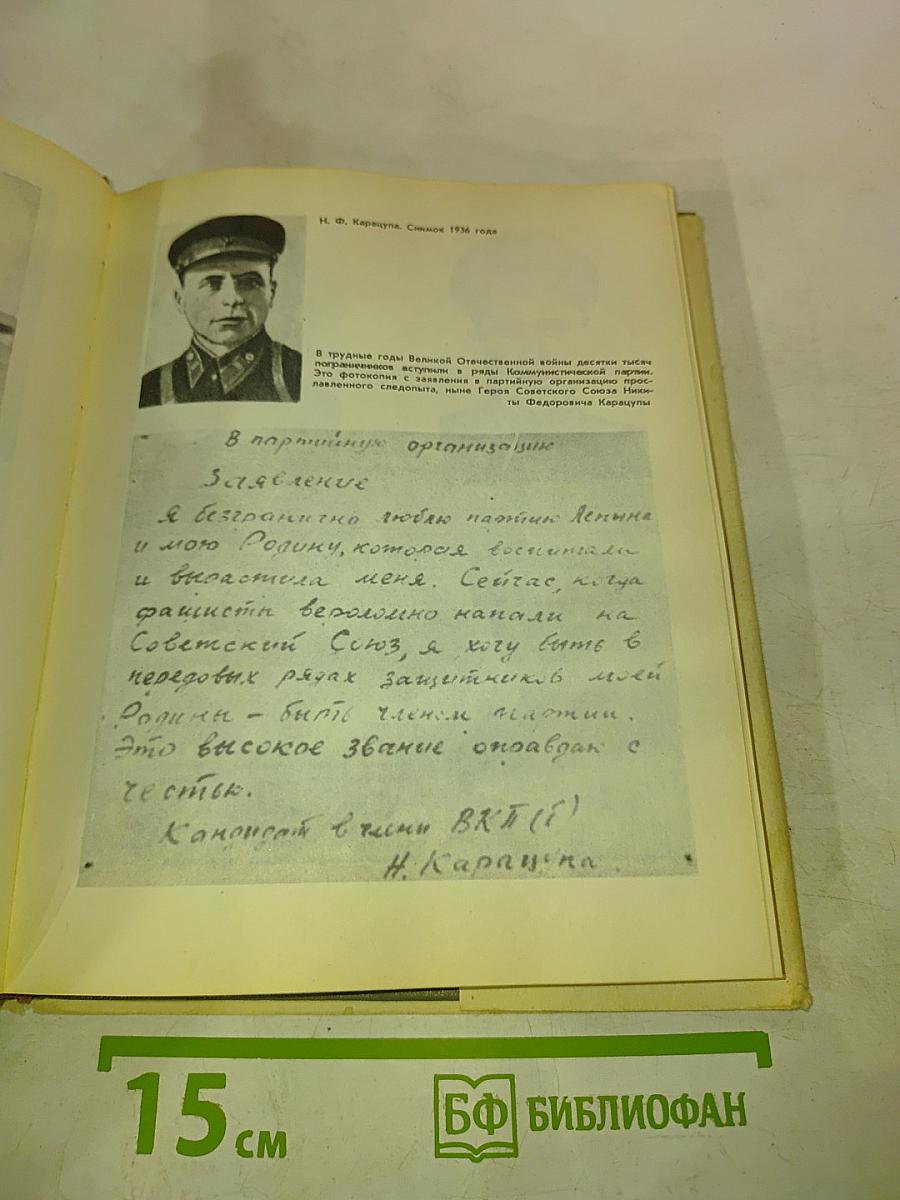 Н. Ф. Карацупа. Снимок 1936 года
В трудные годы Великой Отечественной войны десятки тысяч
пограничников вступили в ряды Коммунистической партии.
Это фотокопия с заявления в партийную организацию прос-
лавленного следопыта, ныне Героя Советского Союза Ники-
ты Федоровича Карацупы
В партийную организацию
Заявление
Я безгранично люблю партию Ленина
и мою Родину, которая воспитала
и вырастила меня. Сейчас, когда
фашисты вероломно напали на
Советский Союз, я хочу быть в
передовых рядах защитников моей
Родины – быть членом партии.
Это высокое звание оправдаю с
честью.
Кандидат в члены ВКП(б)
Н. Карацупа.
15 см
БФ БИБЛИОФАН